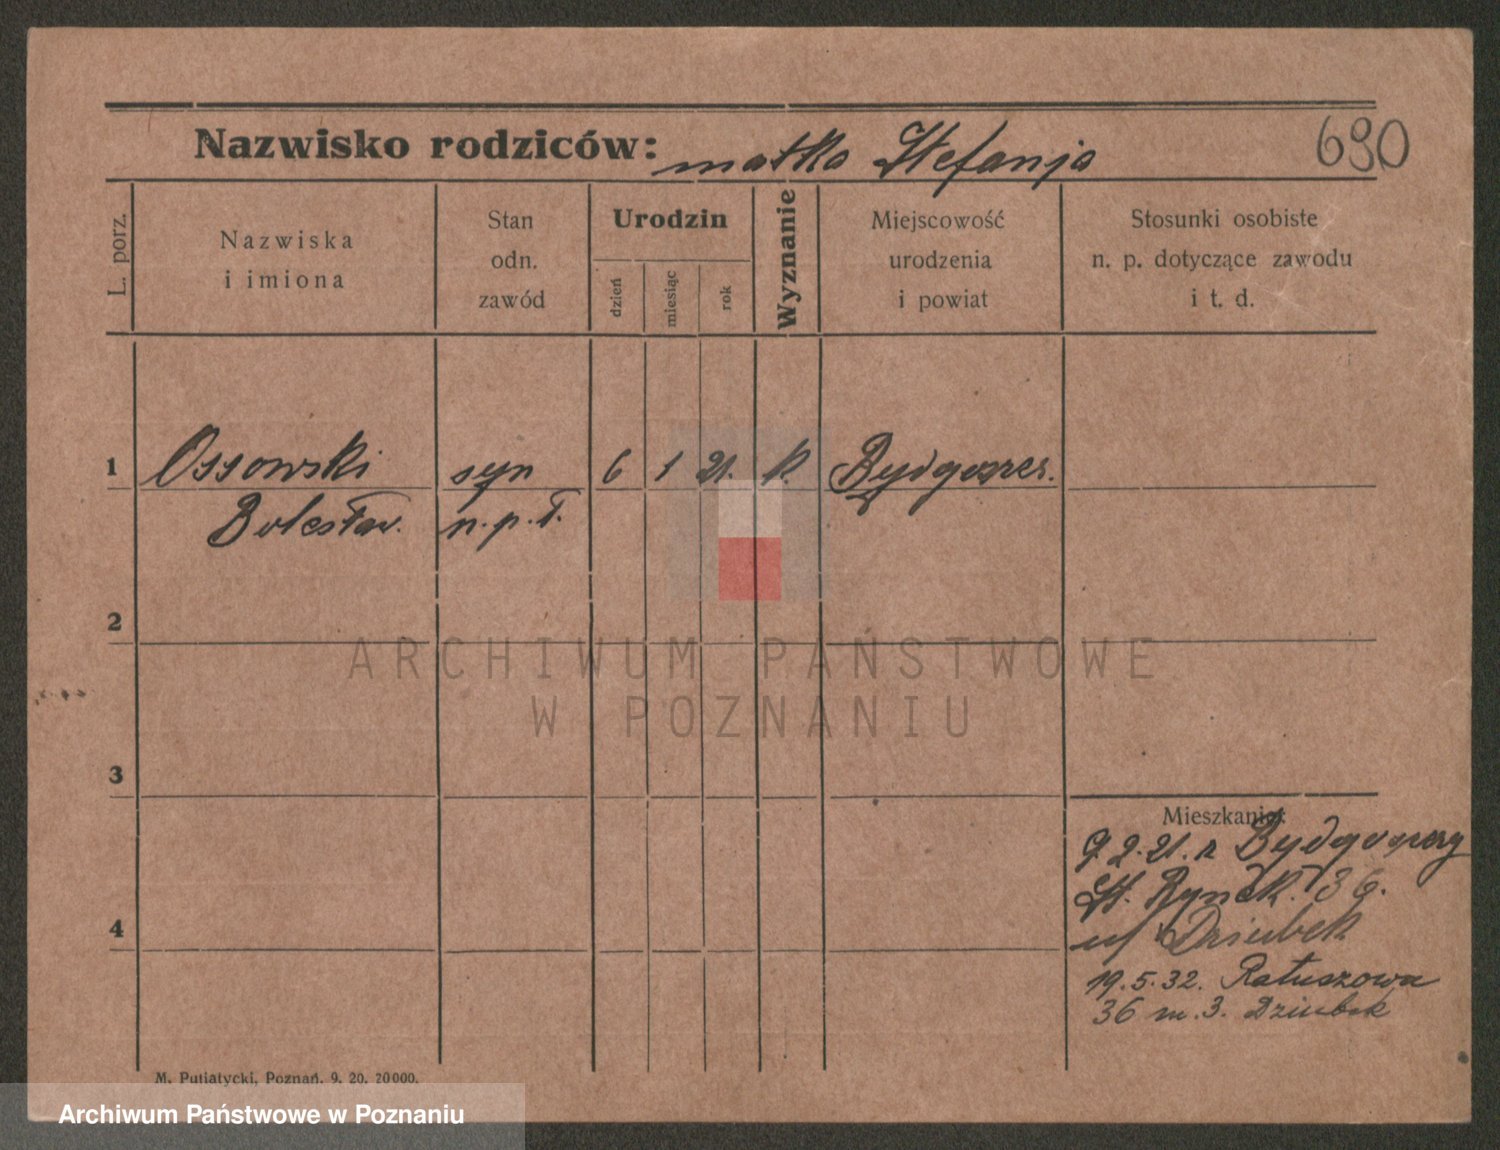 690
Nazwisko rodziców: matka Stefanja
L. porz.
Nazwiska
i imiona
Stan
odn.
zawód
Urodzin
dzień
miesiąc
rok
Wyznanie
Miejscowość
urodzenia
i powiat
Stosunki osobiste
n. p. dotyczące zawodu
i t. d.
1 Ossowski syn 6 1 21. k. Bydgoszcz.
Bolesław. n.p.ł.
2
3
4
Mieszkanie:
9.2.21. z Bydgoszczy
St. Rynek. 36.
u/ Dziubek
19.5.32. Ratuszowa
36 m.3. Dziubek
M. Putiatycki, Poznań. 9. 20. 20000.
ARCHIWUM PAŃSTWOWE
W POZNANIU
Archiwum Państwowe w Poznaniu